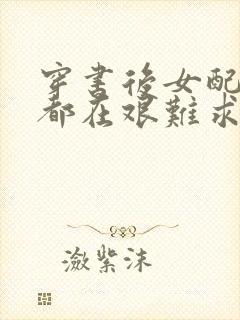 穿書後女配
都在艱難求
瀲紫沫